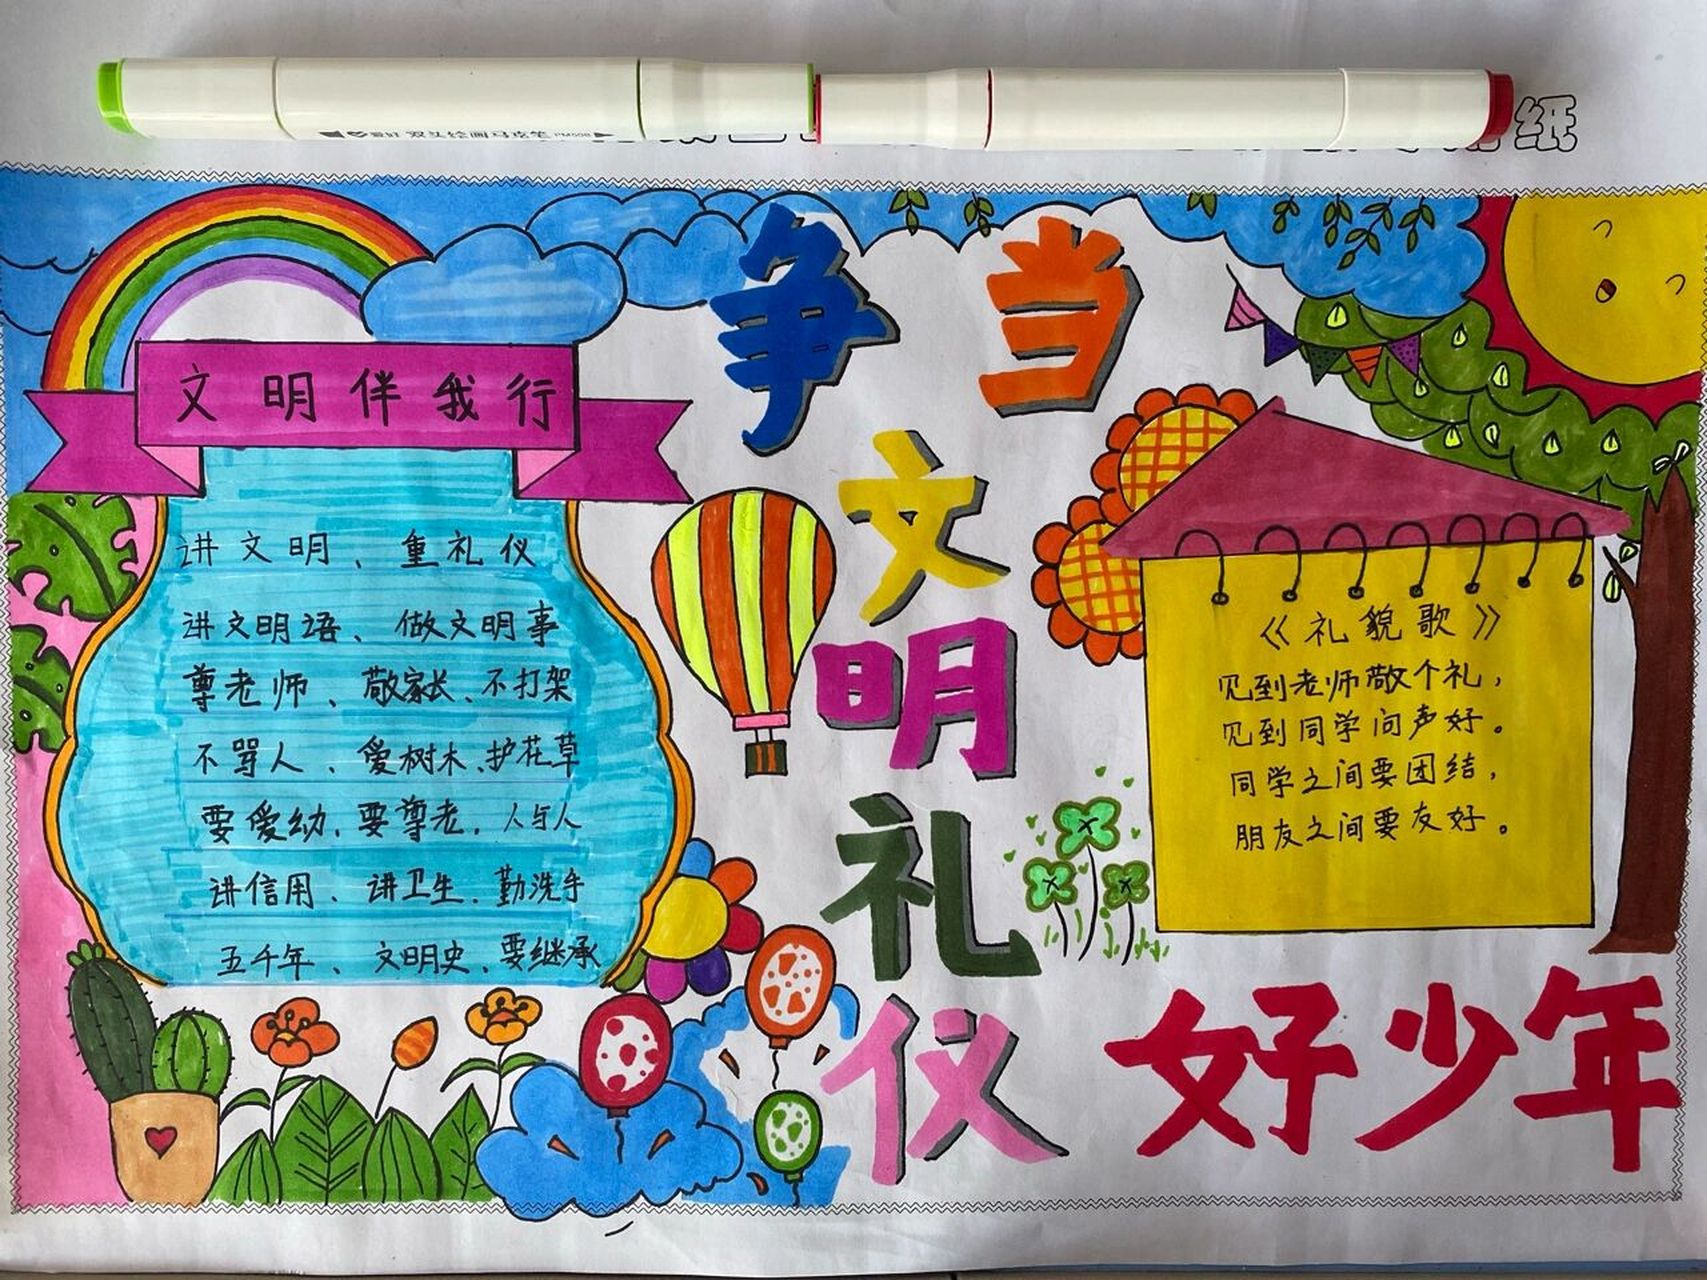 双头绘画马克笔
纸
争当
文
明
礼
仪
好少年
文明伴我行
讲文明、重礼仪
讲文明语、做文明事
尊老师、敬家长、不打架
不骂人、爱树木、护花草
要爱幼、要尊老、人与人
讲信用、讲卫生、勤洗手
五千年、文明史、要继承
《礼貌歌》
见到老师敬个礼，
见到同学问声好。
同学之间要团结，
朋友之间要友好。